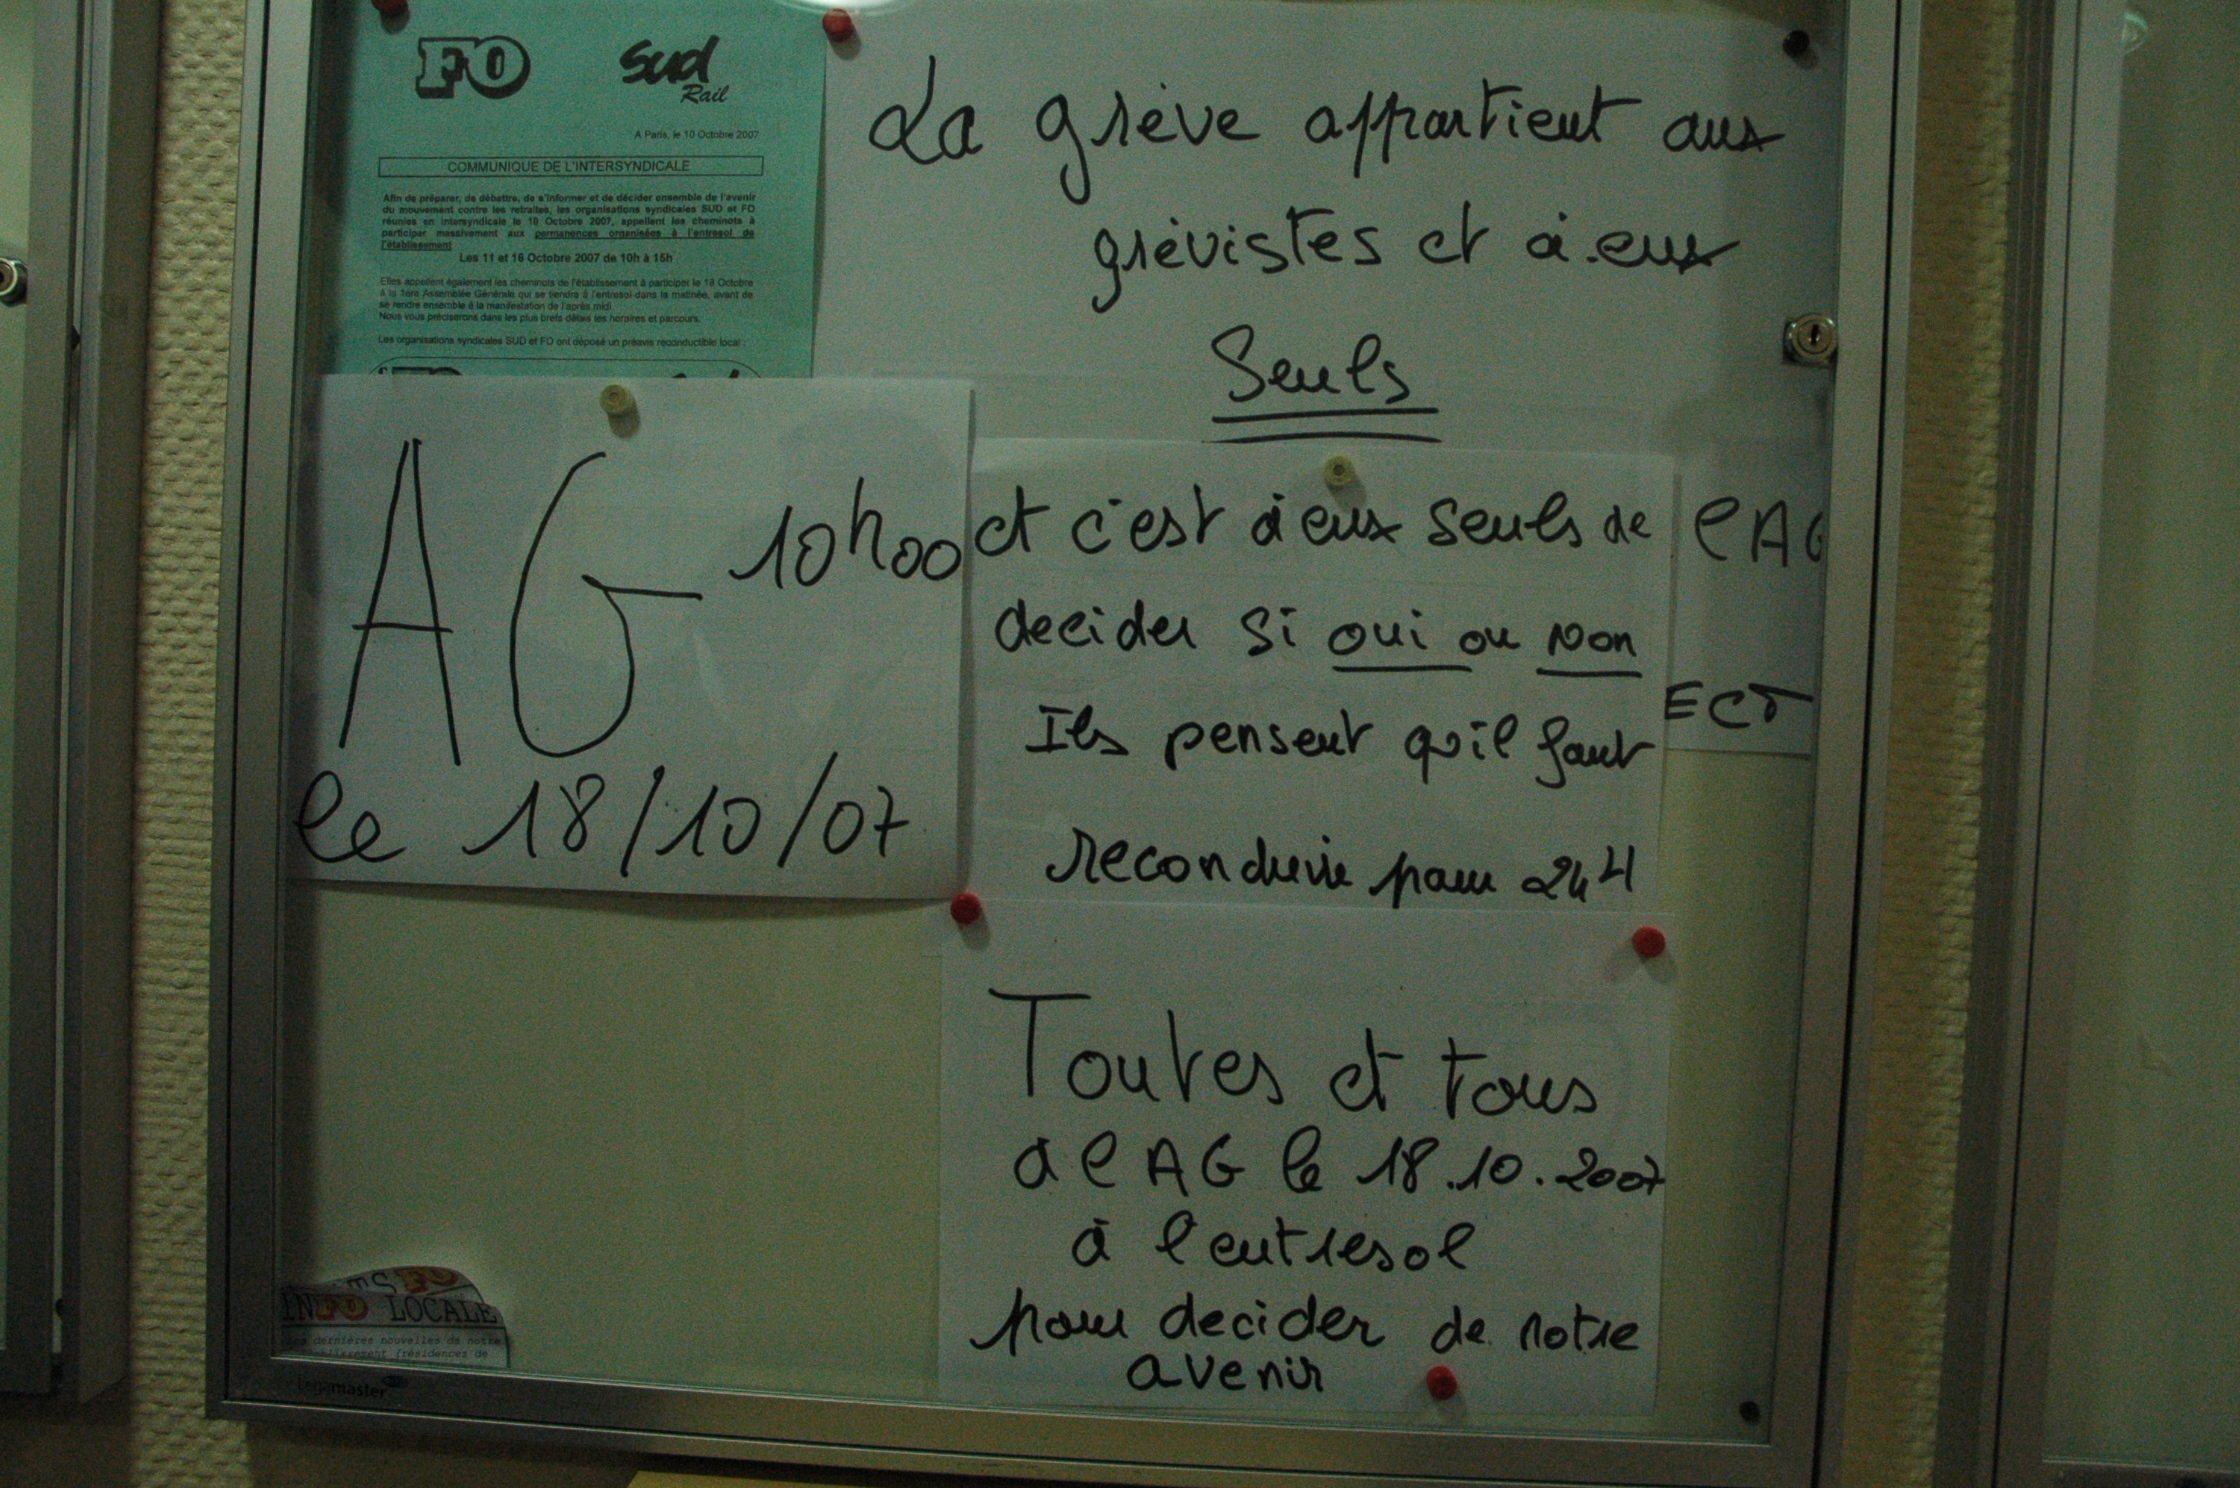 FO
Sud
Rail
A Paris, le 10 Octobre 2007
COMMUNIQUE DE L'INTERSYNDICALE
Afin de préparer, de débattre, de s'informer et de décider ensemble de l'avenir
du mouvement contre les retraites, les organisations syndicales SUD et FO
réunies en intersyndicale le 10 Octobre 2007, appellent les cheminots à
participer massivement aux permanences organisées à l'entresol de
l'établissement
Les 11 et 16 Octobre 2007 de 10h à 15h
Elles appellent également les cheminots de l'établissement à participer le 18 Octobre
à la 1ère Assemblée Générale qui se tiendra à l'entresol dans la matinée, avant de
se rendre ensemble à la manifestation de l'après midi.
Nous vous préciserons dans les plus brefs délais les horaires et parcours.
Les organisations syndicales SUD et FO ont déposé un préavis reconductible local :
La grève appartient aux
grévistes et à eux
Seuls
AG 10h00
le 18/10/07
et c'est à eux seuls de
decider si oui ou non
Ils pensent qu'il faut
reconduire pour 24H
l'AG
ECT
Toutes et tous
a l AG le 18.10.2007
à l'entresol
pour decider de notre
avenir
INFO LOCALE
dernières nouvelles de notre
(résidences de
Legamaster